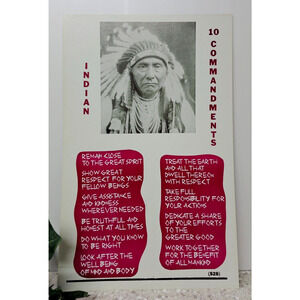 INDIAN
10 COMMANDMENTS
REMAIN CLOSE
TO THE GREAT SPIRIT
SHOW GREAT
RESPECT FOR YOUR
FELLOW BEINGS
GIVE ASSISTANCE
AND KINDNESS
WHEREVER NEEDED
BE TRUTHFUL AND
HONEST AT ALL TIMES
DO WHAT YOU KNOW
TO BE RIGHT
LOOK AFTER THE
WELL BEING
OF MIND AND BODY
TREAT THE EARTH
AND ALL THAT
DWELL THEREON
WITH RESPECT
TAKE FULL
RESPONSIBILITY FOR
YOUR ACTIONS
DEDICATE A SHARE
OF YOUR EFFORTS
TO THE
GREATER GOOD
WORK TOGETHER
FOR THE BENEFIT
OF ALL MANKIND
(525)